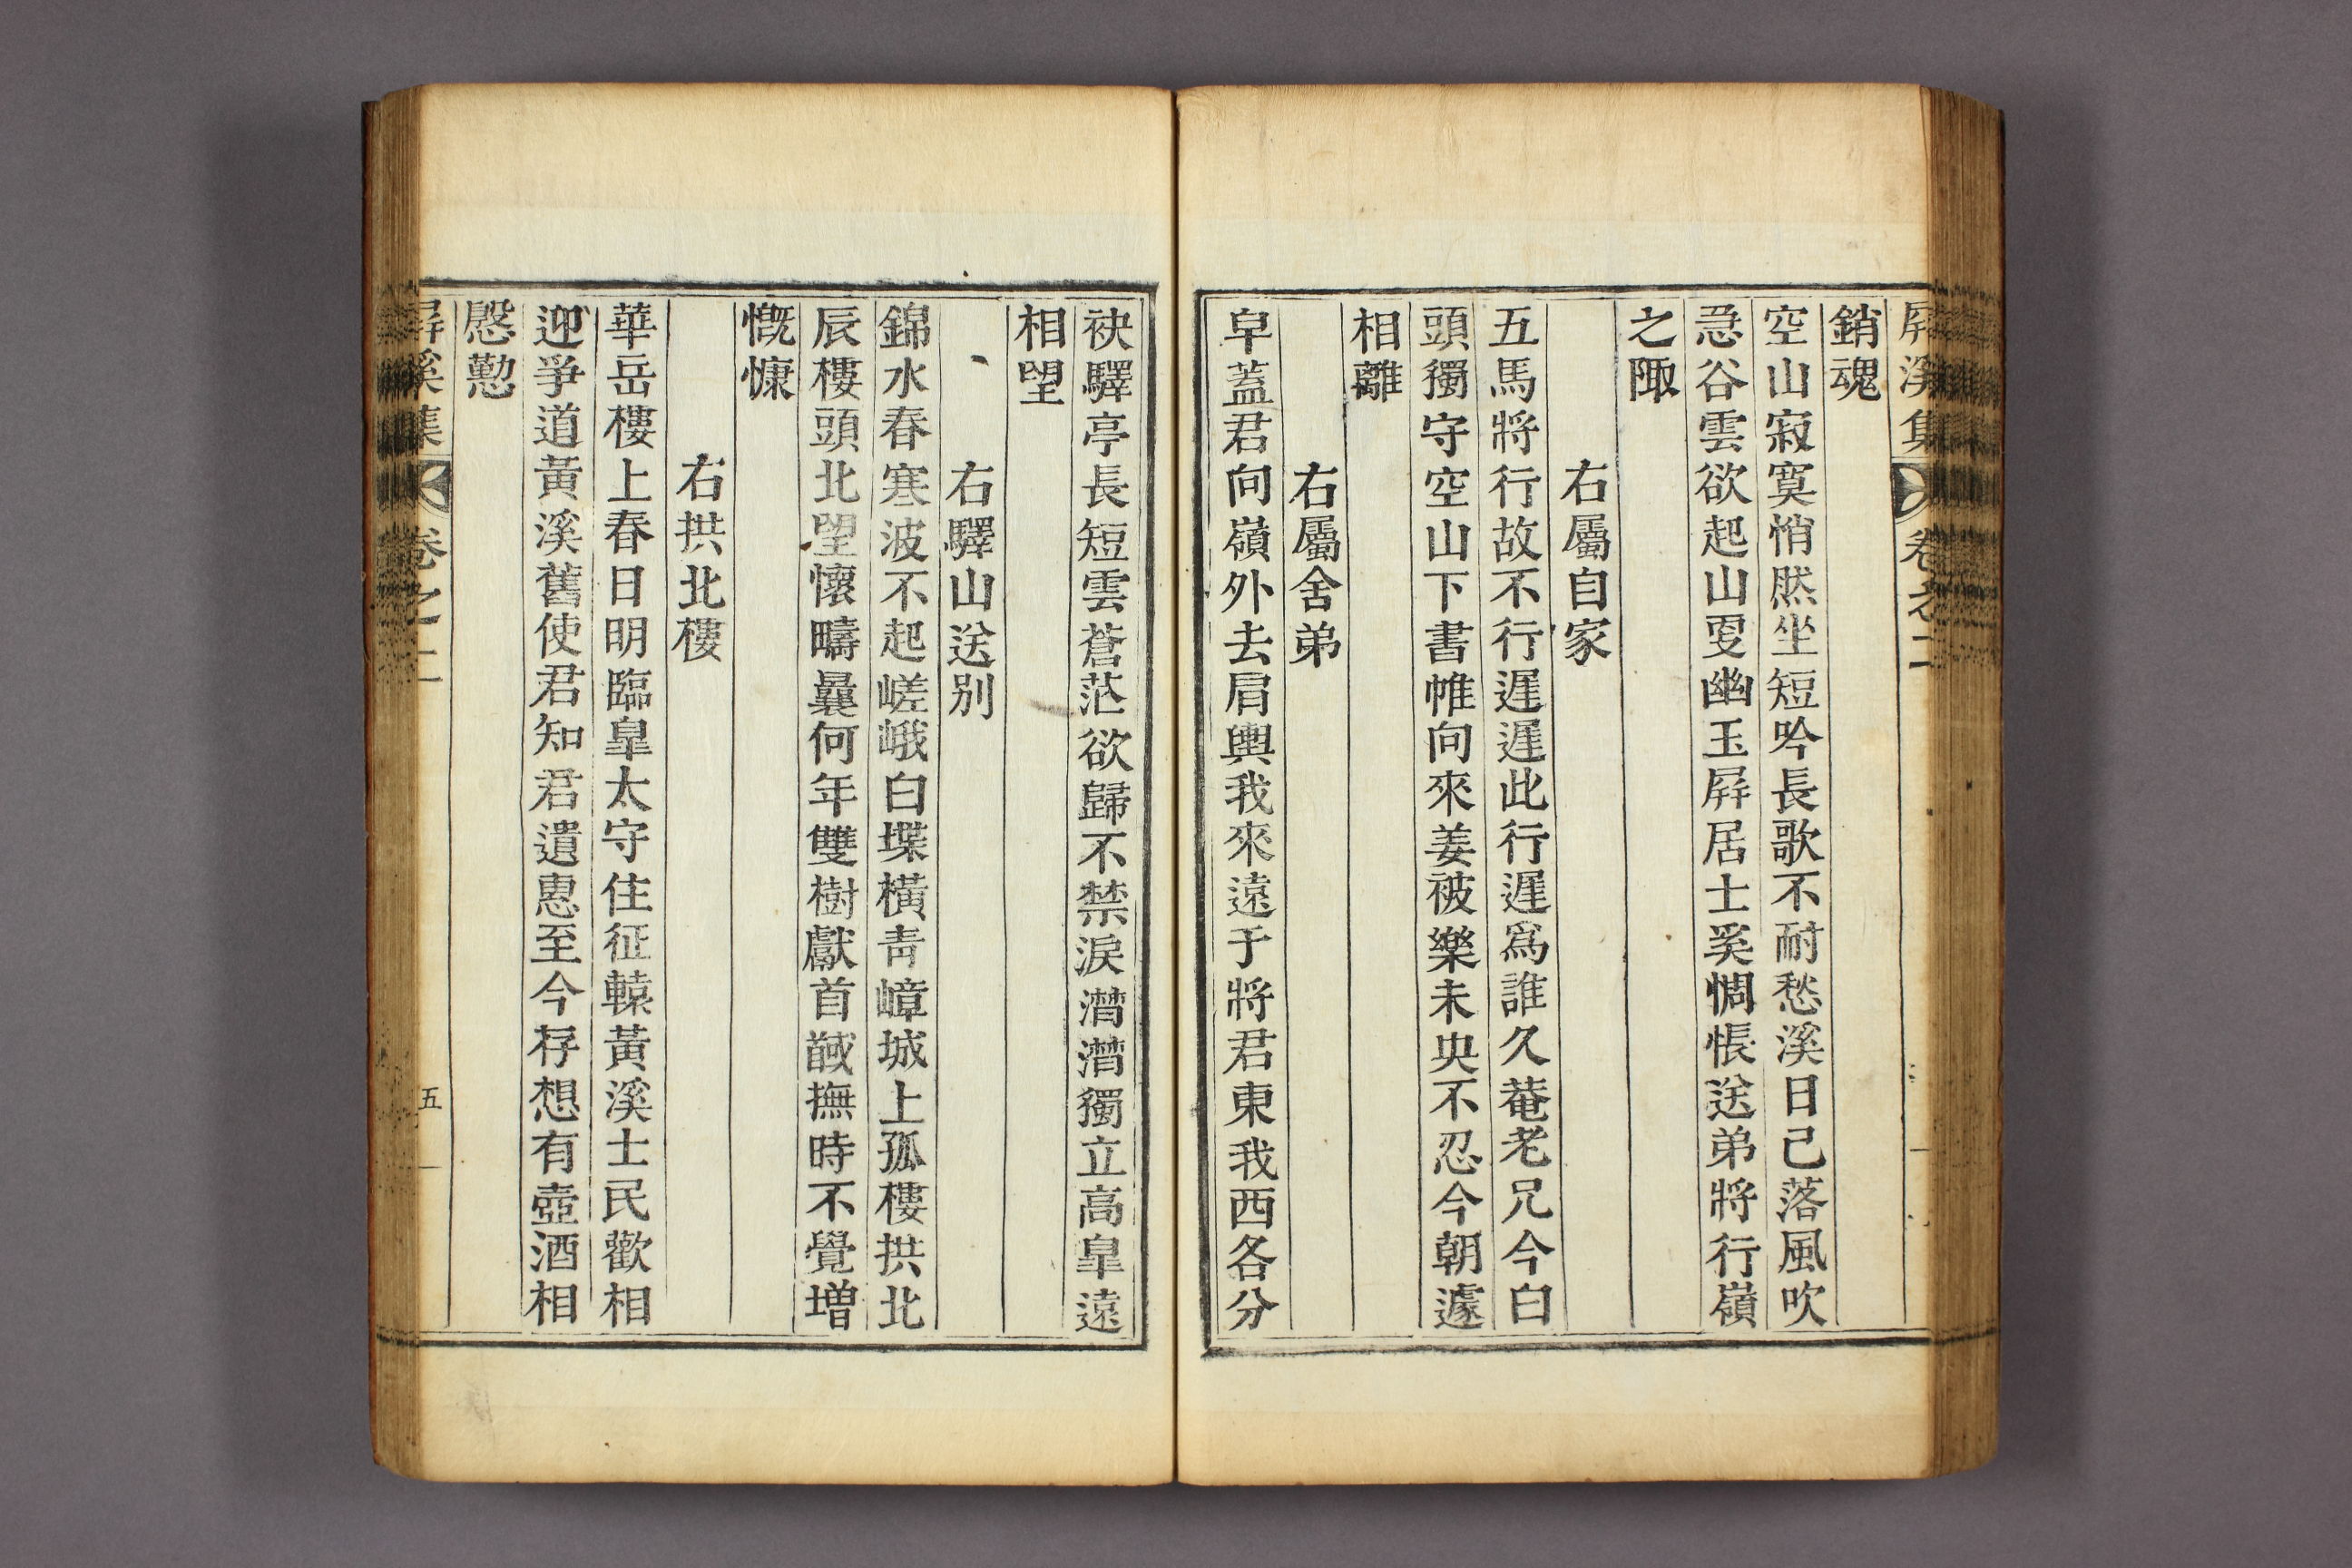 屛溪集 卷之二
銷魂
空山寂寞悄然坐短吟長歌不耐愁溪日已落風吹
急谷雲欲起山更幽玉屛居士奚惆悵送弟將行嶺
之陬
右屬自家
五馬將行故不行遲遲此行行遲爲誰久菴老兄今白
頭獨守空山下書帷向來姜被樂未央不忍今朝遽
相離
右屬舍弟
皁蓋君向嶺外去肩輿我來遠于將君東我西各分
袂驛亭長短雲蒼茫欲歸不禁淚潸潸獨立高皐遠
相望
右驛山送別
錦水春寒波不起嵯峨白堞橫靑嶂城上孤樓拱北
辰樓頭北望懷疇曩何年雙樹獻首馘撫時不覺增
慨慷
右拱北樓
華岳樓上春日明臨皐太守住征轅黃溪士民歡相
迎爭道黃溪舊使君知君遺惠至今存想有壺酒相
慇懃
屛溪集 卷之二 五